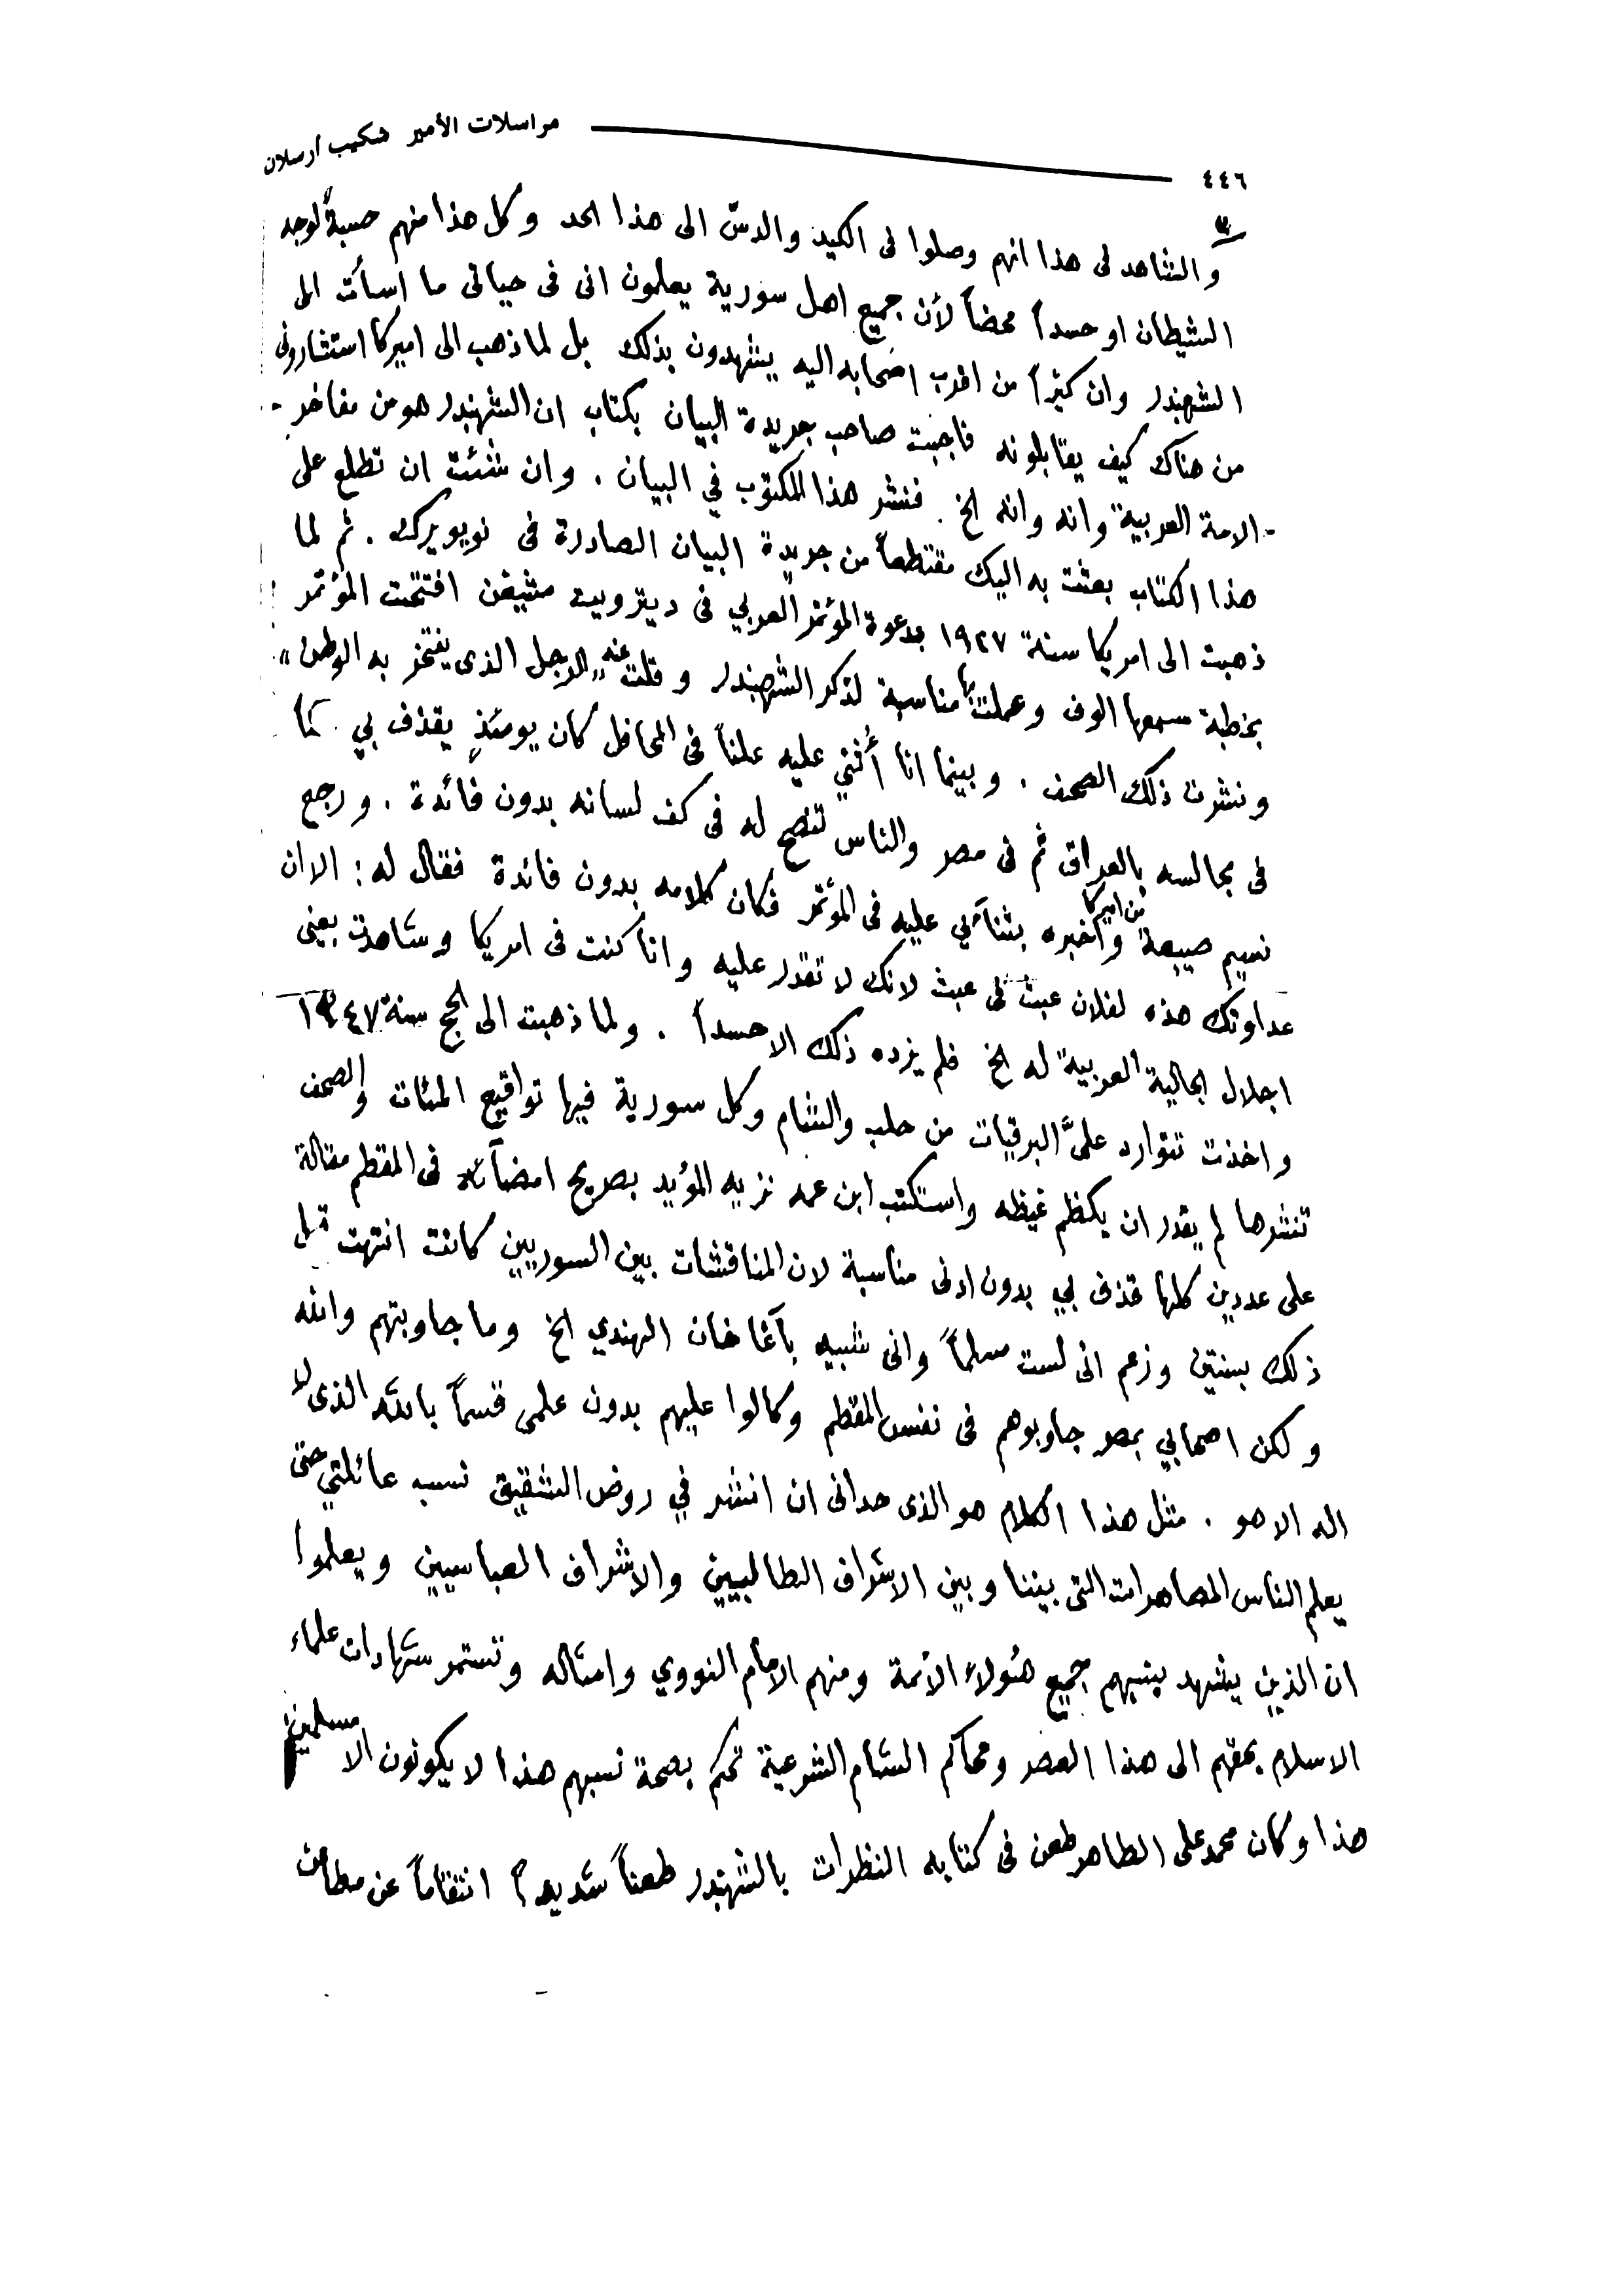 ٤٤٦ مراسلات الأمير شكيب أرسلان
والشاهد فى هذا انهم وصلوا فى الكيد والدسّ الى هذا الحد وكل هذا منهم حسبةً لوجه
الشيطان او حسداً محضاً لأن جميع اهل سورية يعلمون انى فى حياتى ما اسأت الى
الشهبندر وان كثيراً من اقرب اصحابه اليه يشهدون بذلك بل لما ذهب الى اميركا استشارونى
من هناك كيف يقابلونه فاجبت صاحب جريدة البيان بكتاب ان الشهبندر هو من مفاخر -
- الامة العربية وانه وانه الخ . فنشر هذا المكتوب في البيان . وان شئت ان تطلع على
هذا الكتاب بعثت به اليك مقتطعاً من جريدة البيان الصادرة فى نويويرك . ثم لما
ذهبت الى امريكا سنة ١٩٢٧ بدعوة المؤتمر العربي فى ديترويت مشيغن افتتحت المؤتمر
بخطبة سمعها الوف وعملت بها مناسبة لذكر الشهبندر وقلت عنه „الرجل الذى يفتخر به الوطن"
ونشرت ذلك الصحف . وبينما انا أُثني عليه علناً فى المحافل كان يومئذٍ يقذف بي
فى مجالسه بالعراق ثم فى مصر والناس تنصح له فى كف لسانه بدون فائدة . ورجع
نسيم صيبعة من اميركا وأخبره بثنآئي عليه فى المؤتمر فكان كلامه بدون فائدة فقال له : الان
عداوتك هذه لفلان عبث فى عبث لانك لا تقدر عليه وانا كنت فى امريكا وشاهدت بعينى
اجلال الجالية العربية له الخ فلم يزده ذلك الا حسداً . ولما ذهبت الى الحج سنة ١٣٤٧
واخذت تتوارد علىَّ البرقيات من حلب والشام وكل سورية فيها تواقيع المئات والصحف
تنشرها لم يقدر ان يكظم غيظه واستكتب ابن عمه نزيه المؤيد بصريح امضآئه فى المقطم مقالة
على عددين كلها قذف بي بدون ادنى مناسبة لان المناقشات بين السوريين كانت انتهت قبل
ذلك بسنتين وزعم انى لست مسلماً وانى شبيه بآغا خان الهندي الخ وما جاوبتهم والله
ولكن اصحابي بمصر جاوبوهم فى نفس المقطم وكالوا عليهم بدون علمى قسماً بالله الذى لا
اله الا هو . مثل هذا الكلام هو الذى حدانى ان انشر في روض الشقيق نسب عائلتي حتى
يعلم الناس المصاهرات التى بيننا وبين الاشراف الطالبيين والاشراف العباسيين ويعلموا
ان الذين يشهد بنسبهم جميع هئولاء الأئمة ومنهم الامام النووي وامثاله وتستمر شهادات علماء
الاسلام بحقهم الى هذا العصر ومحاكم الشام الشرعية تحكم بصحة نسبهم هذا لا يكونون الا مسلمين
هذا وكان محمد على الطاهر طعن فى كتابه النظرات بالشهبندر طعناً شديداً انتقاماً عن مطاعن